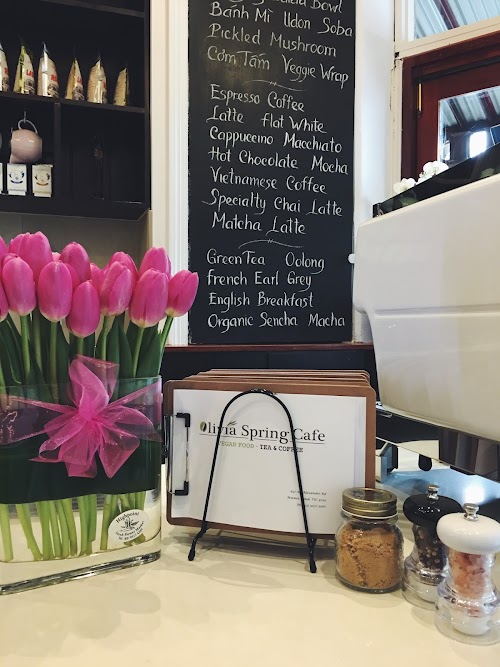 Bowl
Bánh Mì Udon Soba
Pickled Mushroom
Cơm Tấm Veggie Wrap
Espresso Coffee
Latte Flat White
Cappuccino Macchiato
Hot Chocolate Mocha
Vietnamese Coffee
Specialty Chai Latte
Matcha Latte
Green Tea Oolong
French Earl Grey
English Breakfast
Organic Sencha Macha
Olivia Spring Cafe
VEGAN FOOD - TEA & COFFEE
Highpoint